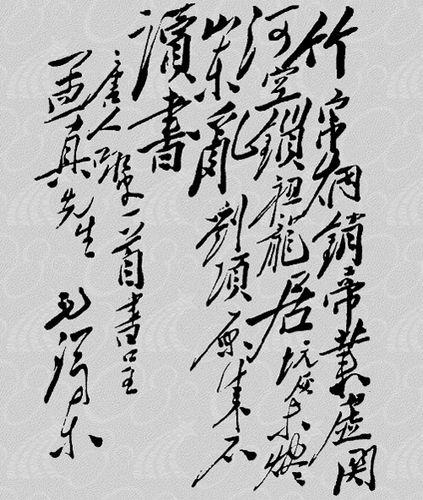 竹帛烟銷帝業虛関
河空鎖祖龍居坑灰未燼
山東亂劉項原來不
讀書
唐人詠史一首書呈
孟真先生 毛澤东